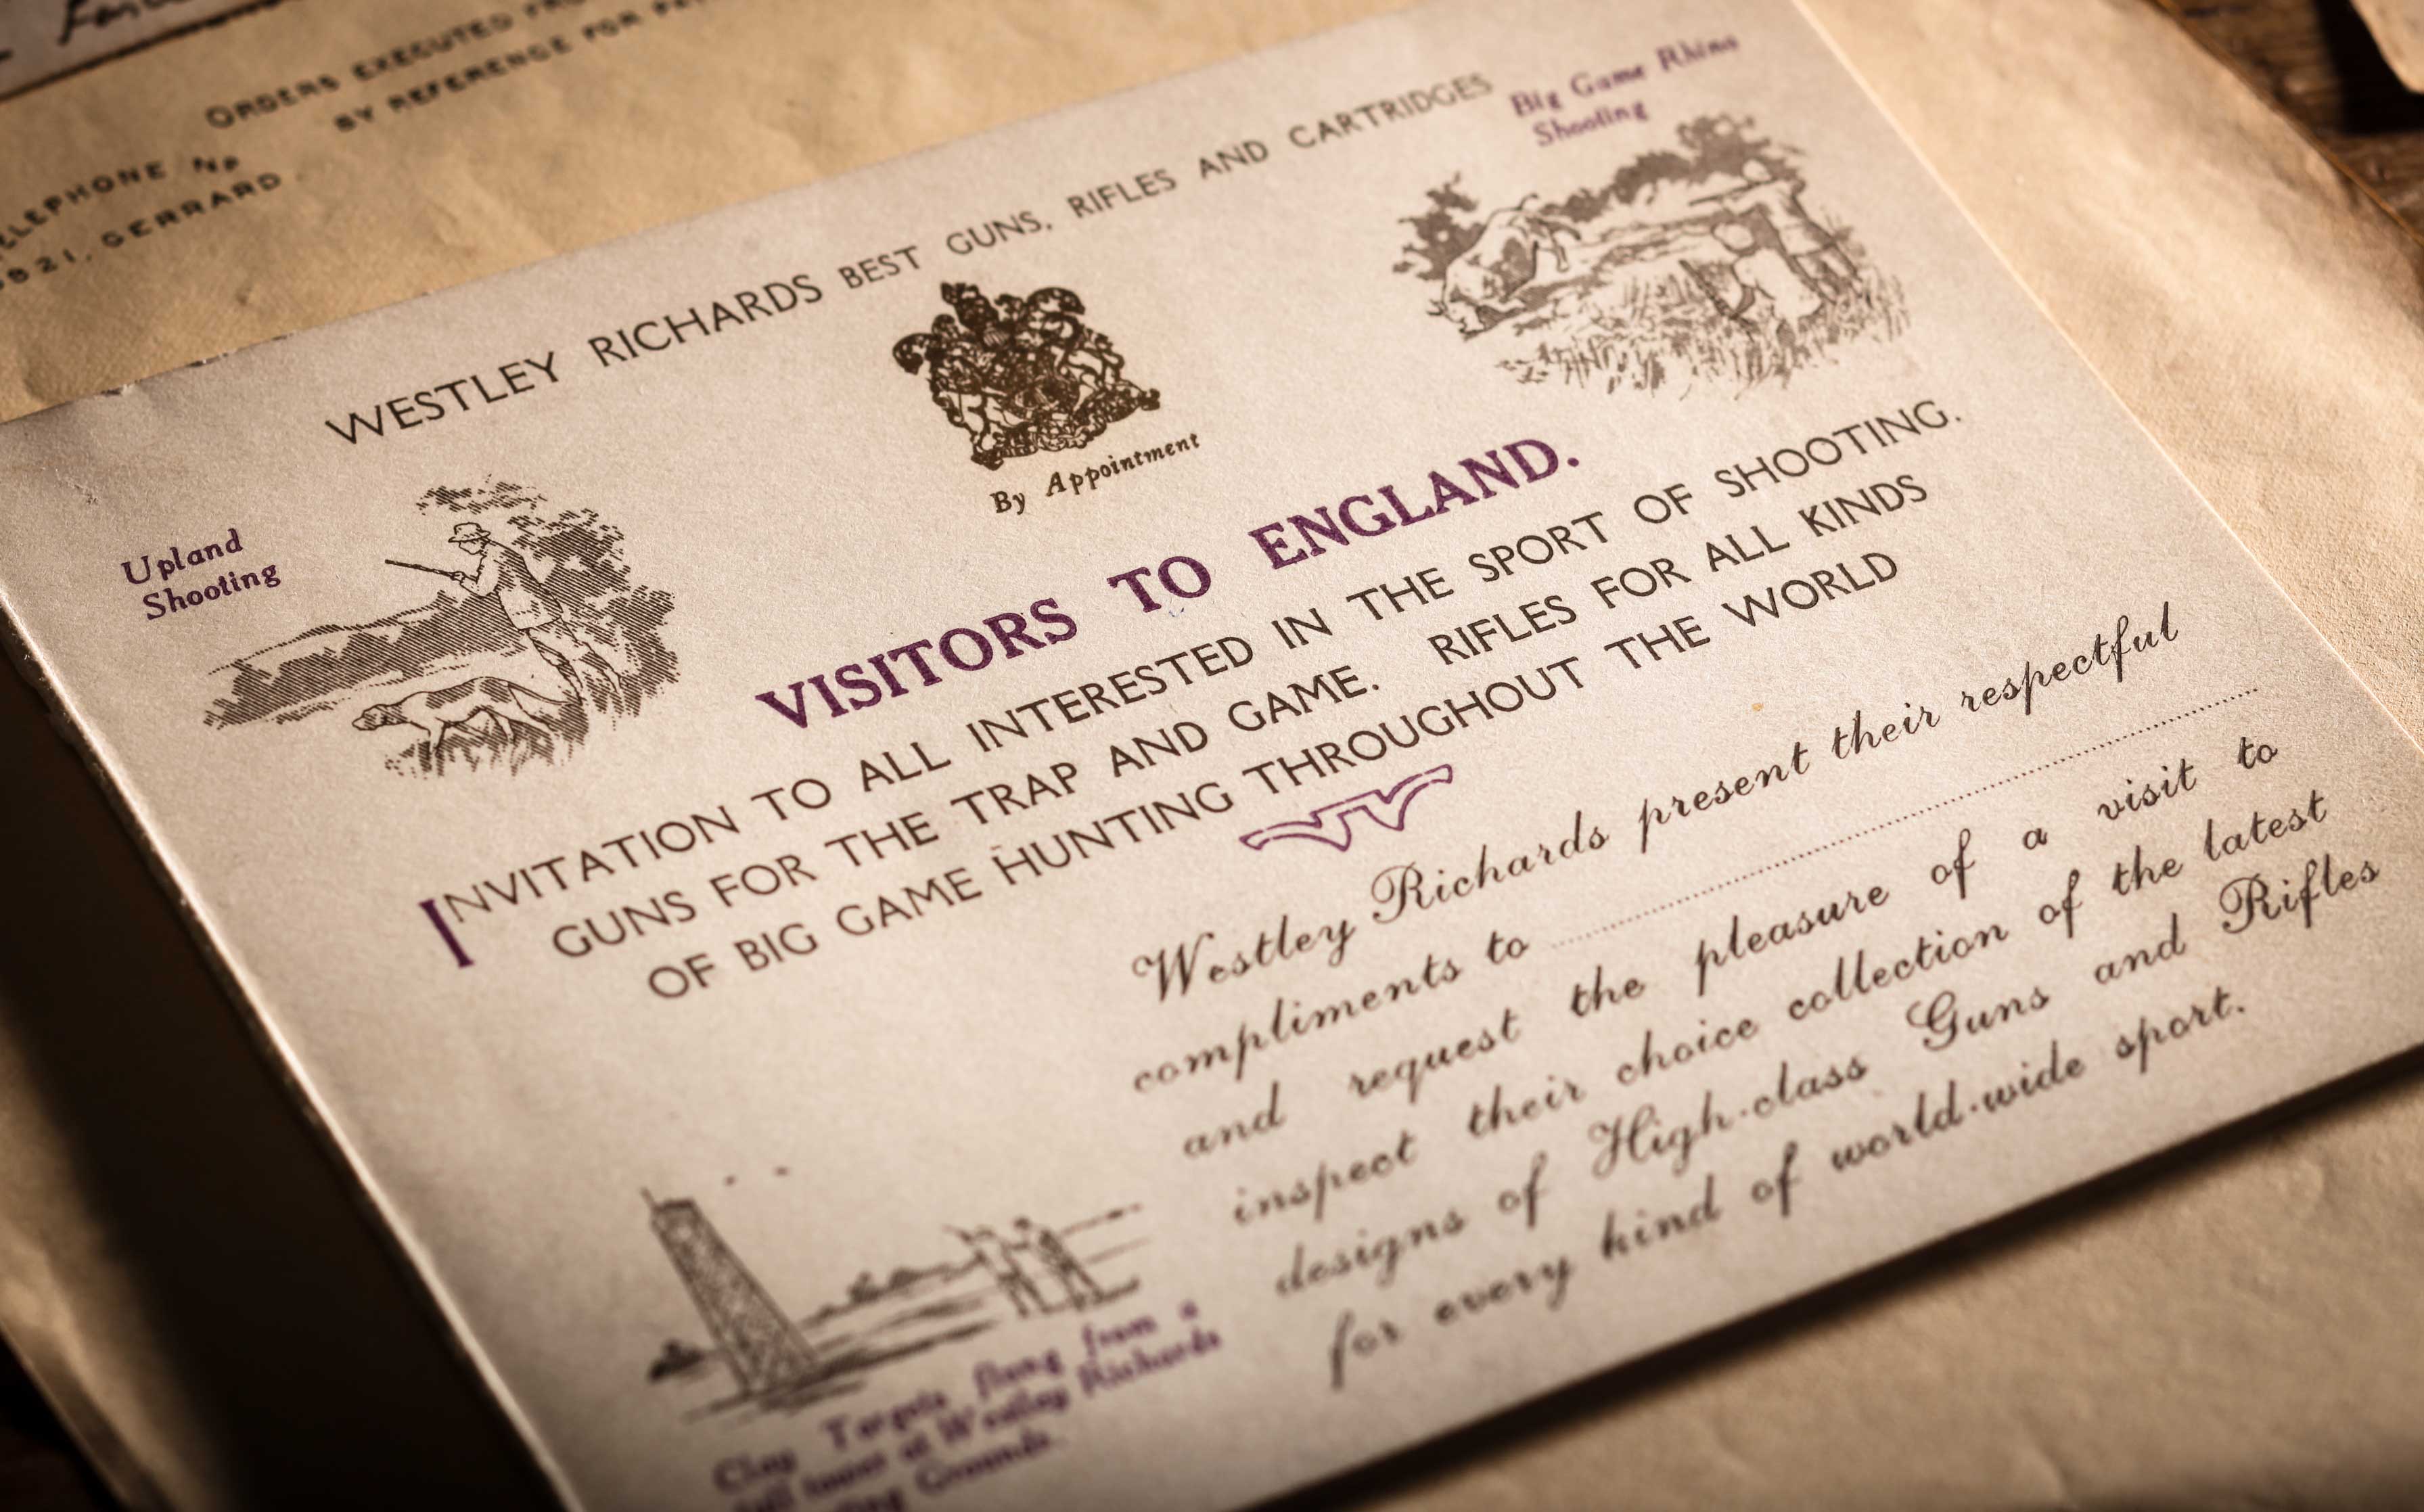 ORDERS EXECUTED
BY REFERENCE FOR
TELEPHONE No
GERRARD
WESTLEY RICHARDS BEST GUNS, RIFLES AND CARTRIDGES
Big Game Rhino
Shooting
By Appointment
Upland
Shooting
VISITORS TO ENGLAND.
INVITATION TO ALL INTERESTED IN THE SPORT OF SHOOTING.
GUNS FOR THE TRAP AND GAME. RIFLES FOR ALL KINDS
OF BIG GAME HUNTING THROUGHOUT THE WORLD
Westley Richards present their respectful
compliments to ....................
and request the pleasure of a visit to
inspect their choice collection of the latest
designs of High-class Guns and Rifles
for every kind of world-wide sport.
Clay Targets flung from a
tall tower at Westley Richards
Grounds.